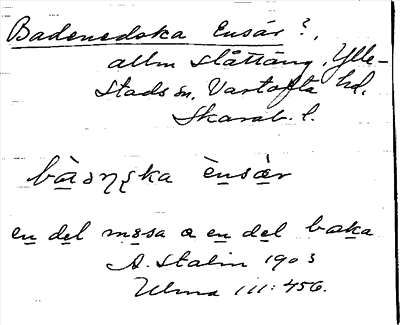 Badenedska Ensár?,
allm slåttäng, Ylle-
stads sn, Vartofta hd,
Skarab. l.
ènsár
en del mosa a en del baka
A. Stalin 1903
Ulma 111:456.